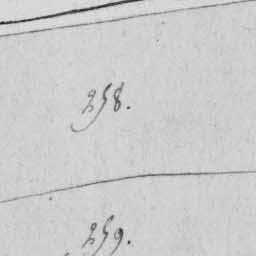 258.
259.